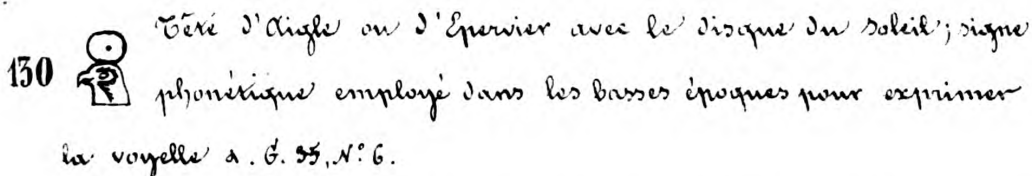 130 Tête d'Aigle ou d'Epervier avec le disque du soleil; signe
phonétique employé dans les basses époques pour exprimer
la voyelle a. G. 35, N.° 6.